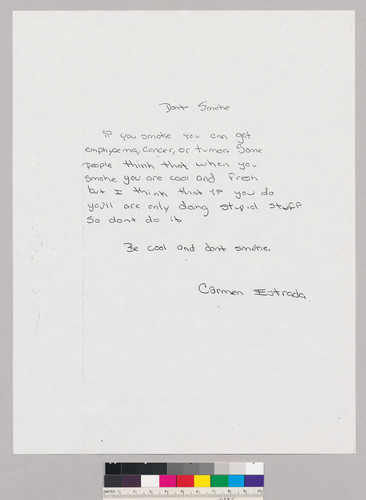 Dont Smoke
If you smoke you can get
emphycema, cancer, or tumors some
people think that when you
smoke you are cool and fresh
but I think that if you do
you'll are only doing stupid stuff
So dont do it
Be cool and dont smoke.
Carmen Estrada.